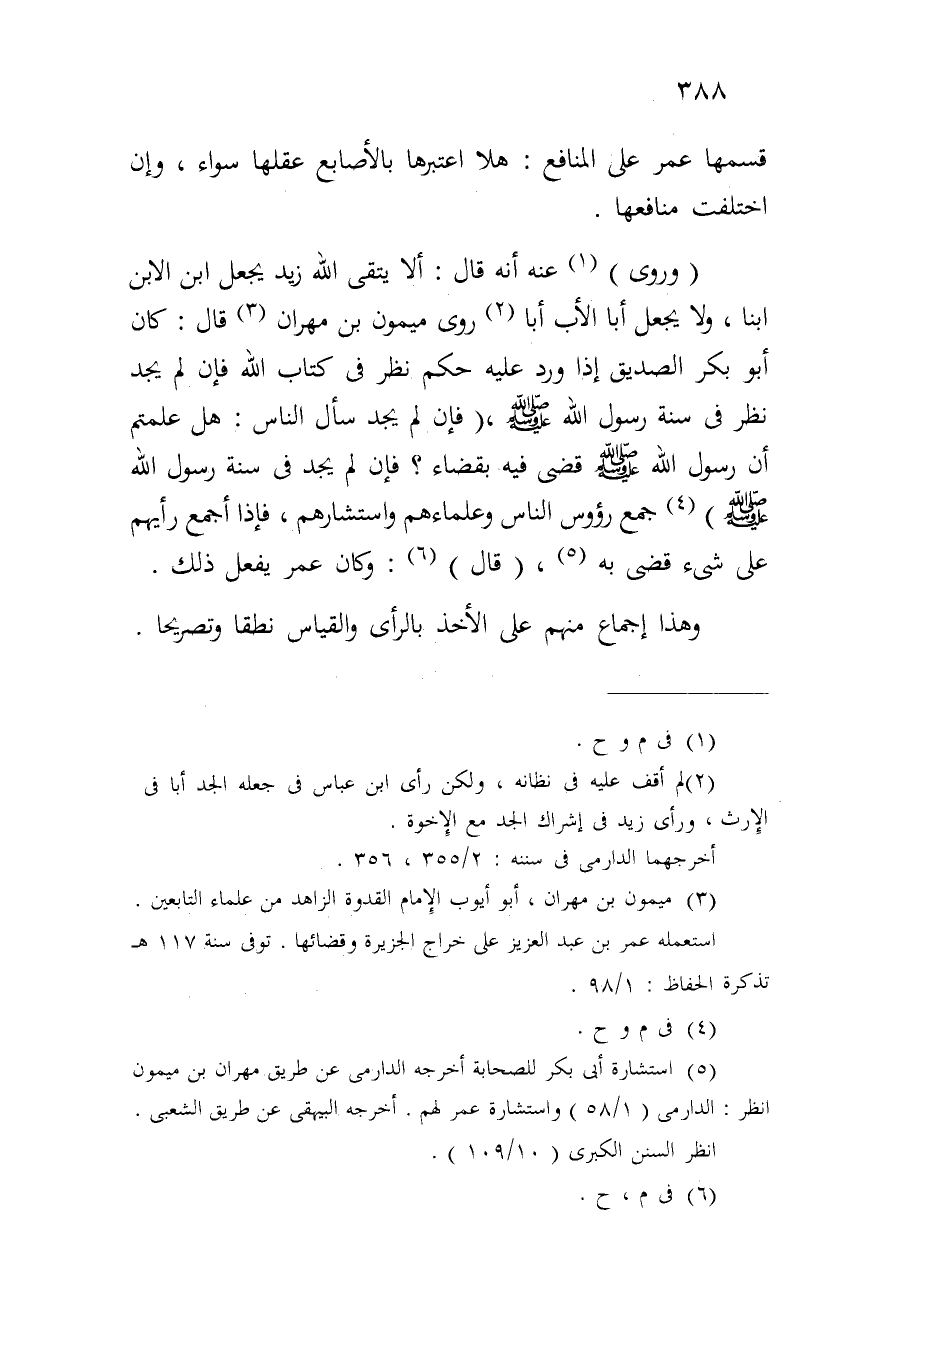 ٣٨٨
قسمها عمر على المنافع : هلا اعتبرها بالأصابع عقلها سواء ، وإن
اختلفت منافعها .
( وروى ) (١) عنه أنه قال : ألا يتقى الله زيد يجعل ابن الابن
ابنا ، ولا يجعل أبا الأب أبا (٢) روى ميمون بن مهران (٣) قال : كان
أبو بكر الصديق إذا ورد عليه حكم نظر فى كتاب الله فإن لم يجد
نظر فى سنة رسول الله ﷺ ،( فإن لم يجد سأل الناس : هل علمتم
أن رسول الله ﷺ قضى فيه بقضاء ؟ فإن لم يجد فى سنة رسول الله
ﷺ ) (٤) جمع رؤوس الناس وعلماءهم واستشارهم ، فإذا أجمع رأيهم
على شىء قضى به (٥) ، ( قال ) (٦) : وكان عمر يفعل ذلك .
وهذا إجماع منهم على الأخذ بالرأى والقياس نطقا وتصريحا .
(١) فى م و ح .
(٢)لم أقف عليه فى نظانه ، ولكن رأى ابن عباس فى جعله الجد أبا فى
الإرث ، ورأى زيد فى إشراك الجد مع الإخوة .
أخرجهما الدارمى فى سننه : ٣٥٥/٢ ، ٣٥٦ .
(٣) ميمون بن مهران ، أبو أيوب الإمام القدوة الزاهد من علماء التابعين .
استعمله عمر بن عبد العزيز على خراج الجزيرة وقضائها . توفى سنة ١١٧ هـ
تذكرة الحفاظ : ٩٨/١ .
(٤) فى م و ح .
(٥) استشارة أبى بكر للصحابة أخرجه الدارمى عن طريق مهران بن ميمون
انظر : الدارمى ( ٥٨/١ ) واستشارة عمر لهم . أخرجه البيهقى عن طريق الشعبى .
انظر السنن الكبرى ( ١٠٩/١٠ ) .
(٦) فى م ، ح .